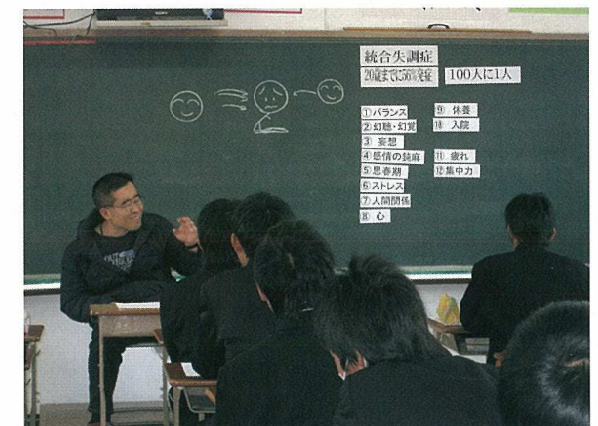 統合失調症
20歳までに56%発症
100人に1人
①バランス
②幻聴・幻覚
③ 妄想
④感情の鈍麻
⑤思春期
⑥ストレス
⑦人間関係
⑧ 心
⑨ 休養
⑩ 入院
⑪ 疲れ
⑫集中力